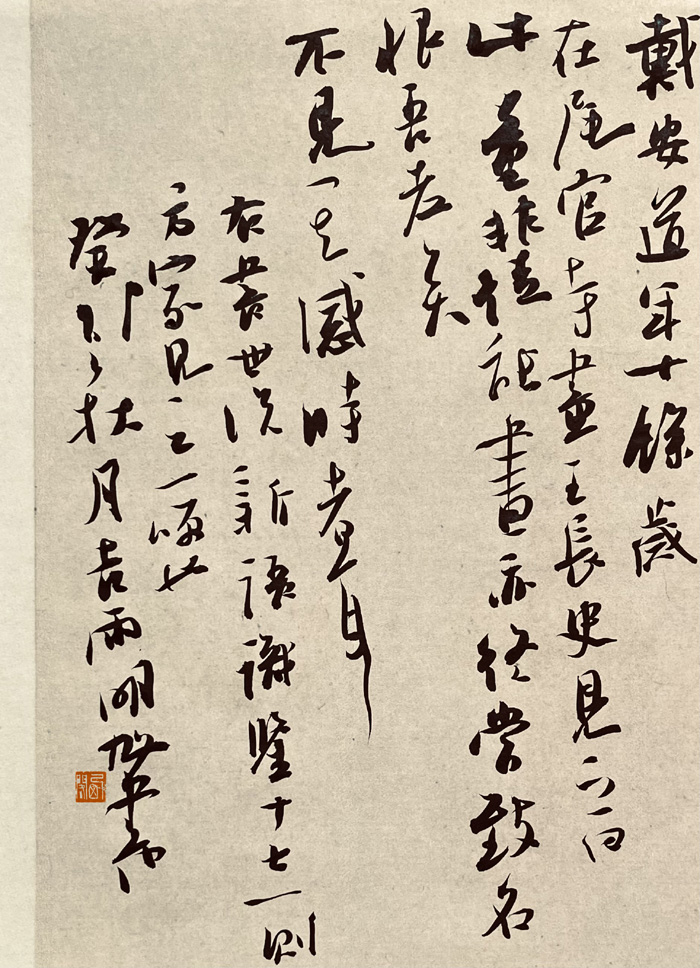 戴安道年十餘歲
在瓦官寺畫王長史見之曰
此童非徒能畫亦終當致名
恨吾老矣
不見 其盛時耳
右錄世說新語識鑒十七一則
方家見之一哂也
癸卯之秋月 雨